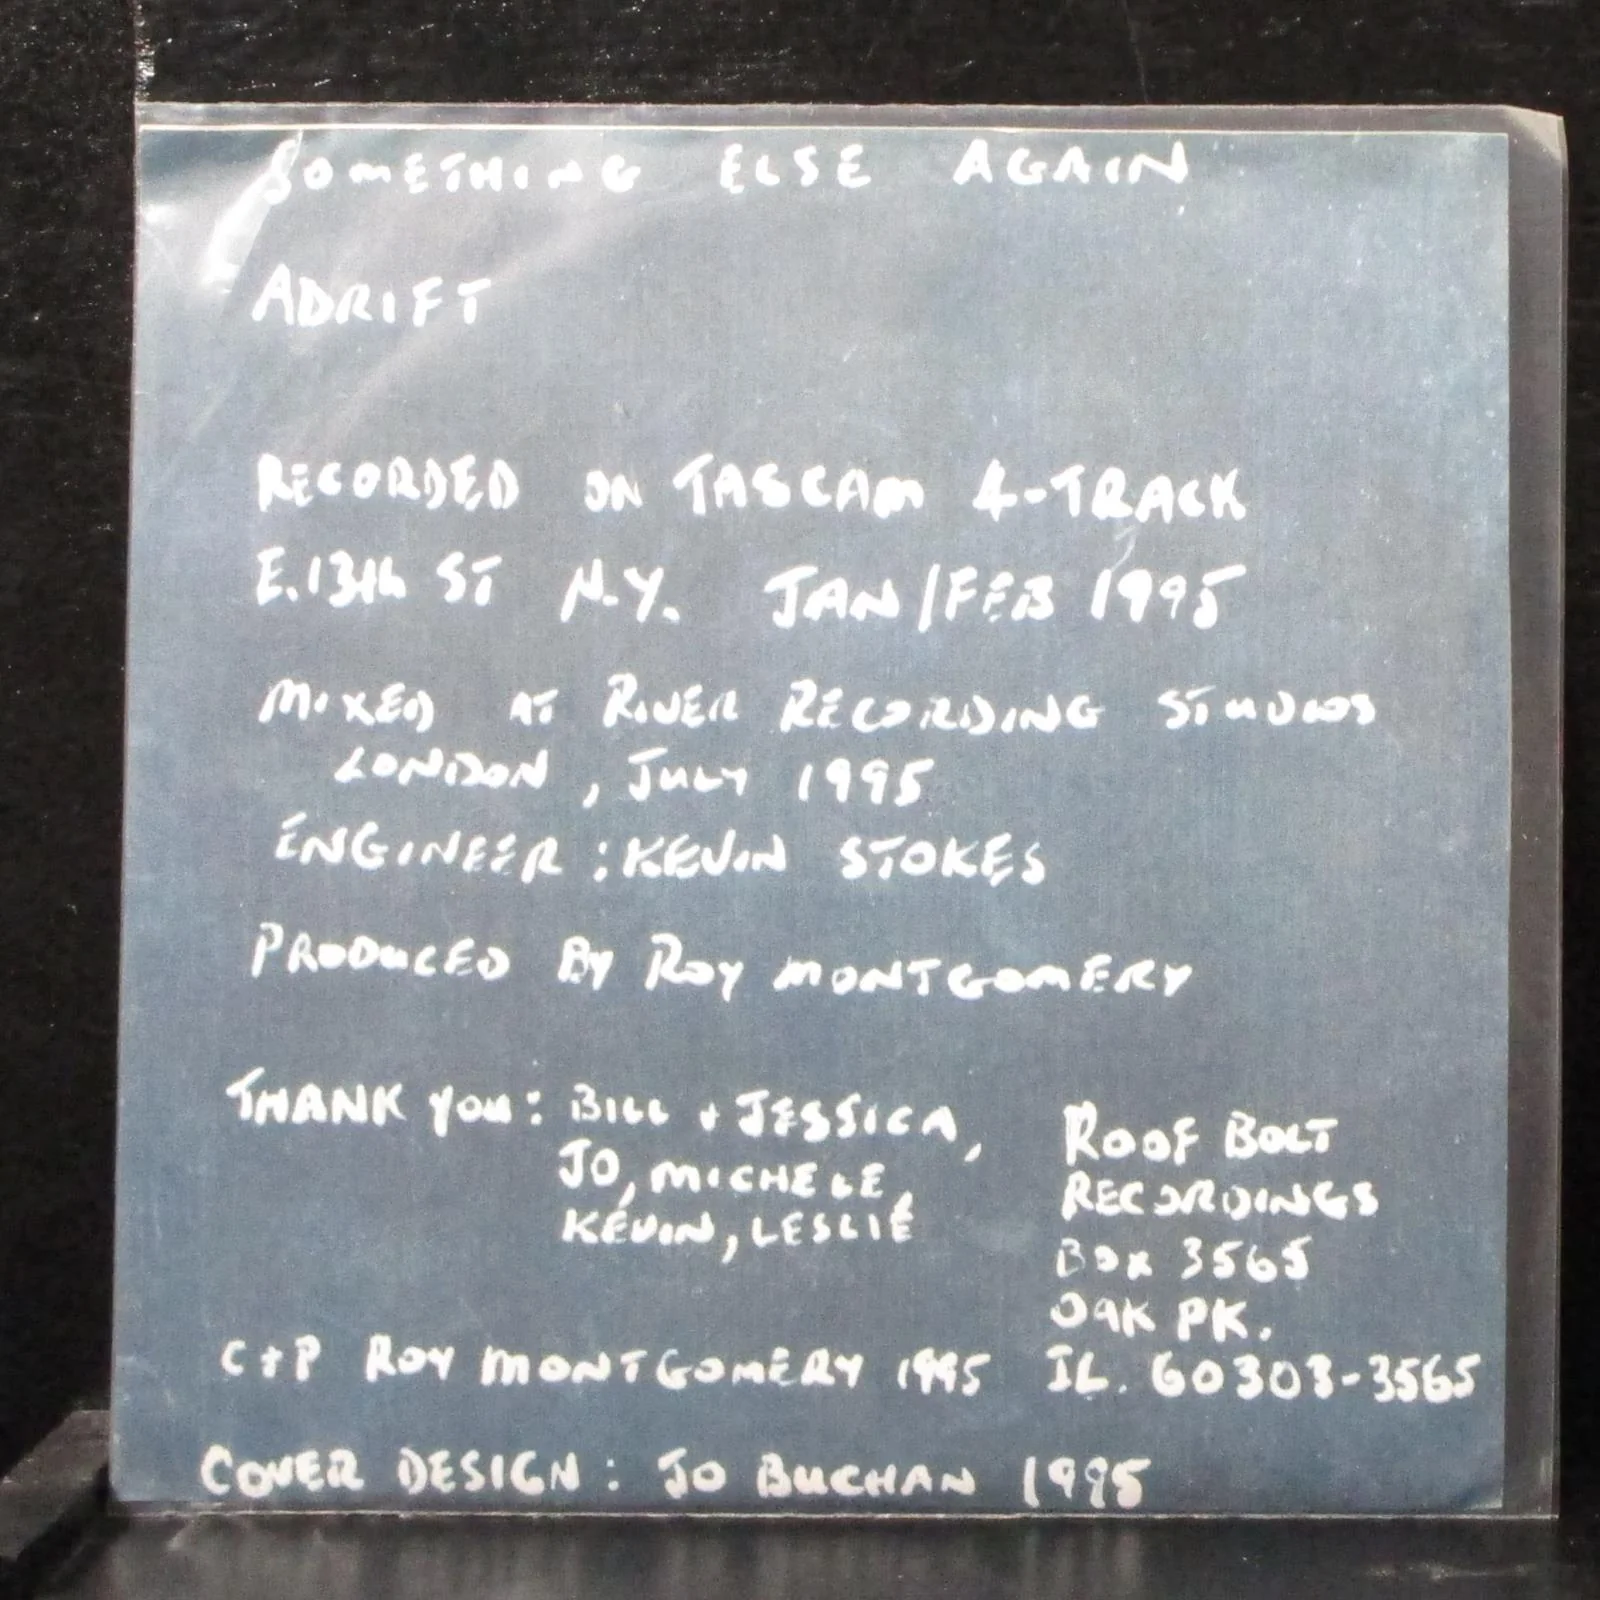 SOMETHING ELSE AGAIN
ADRIFT
RECORDED ON TASCAM 4-TRACK
E.13th ST N.Y. JAN/FEB 1995
MIXED AT RIVER RECORDING STUDIOS
LONDON, JULY 1995
ENGINEER: KEVIN STOKES
PRODUCED BY ROY MONTGOMERY
THANK YOU: BILL + JESSICA,
JO, MICHELE,
KEVIN, LESLIE
ROOF BOLT
RECORDINGS
BOX 3565
OAK PK.
IL. 60303-3565
C+P ROY MONTGOMERY 1995
COVER DESIGN: JO BUCHAN 1995